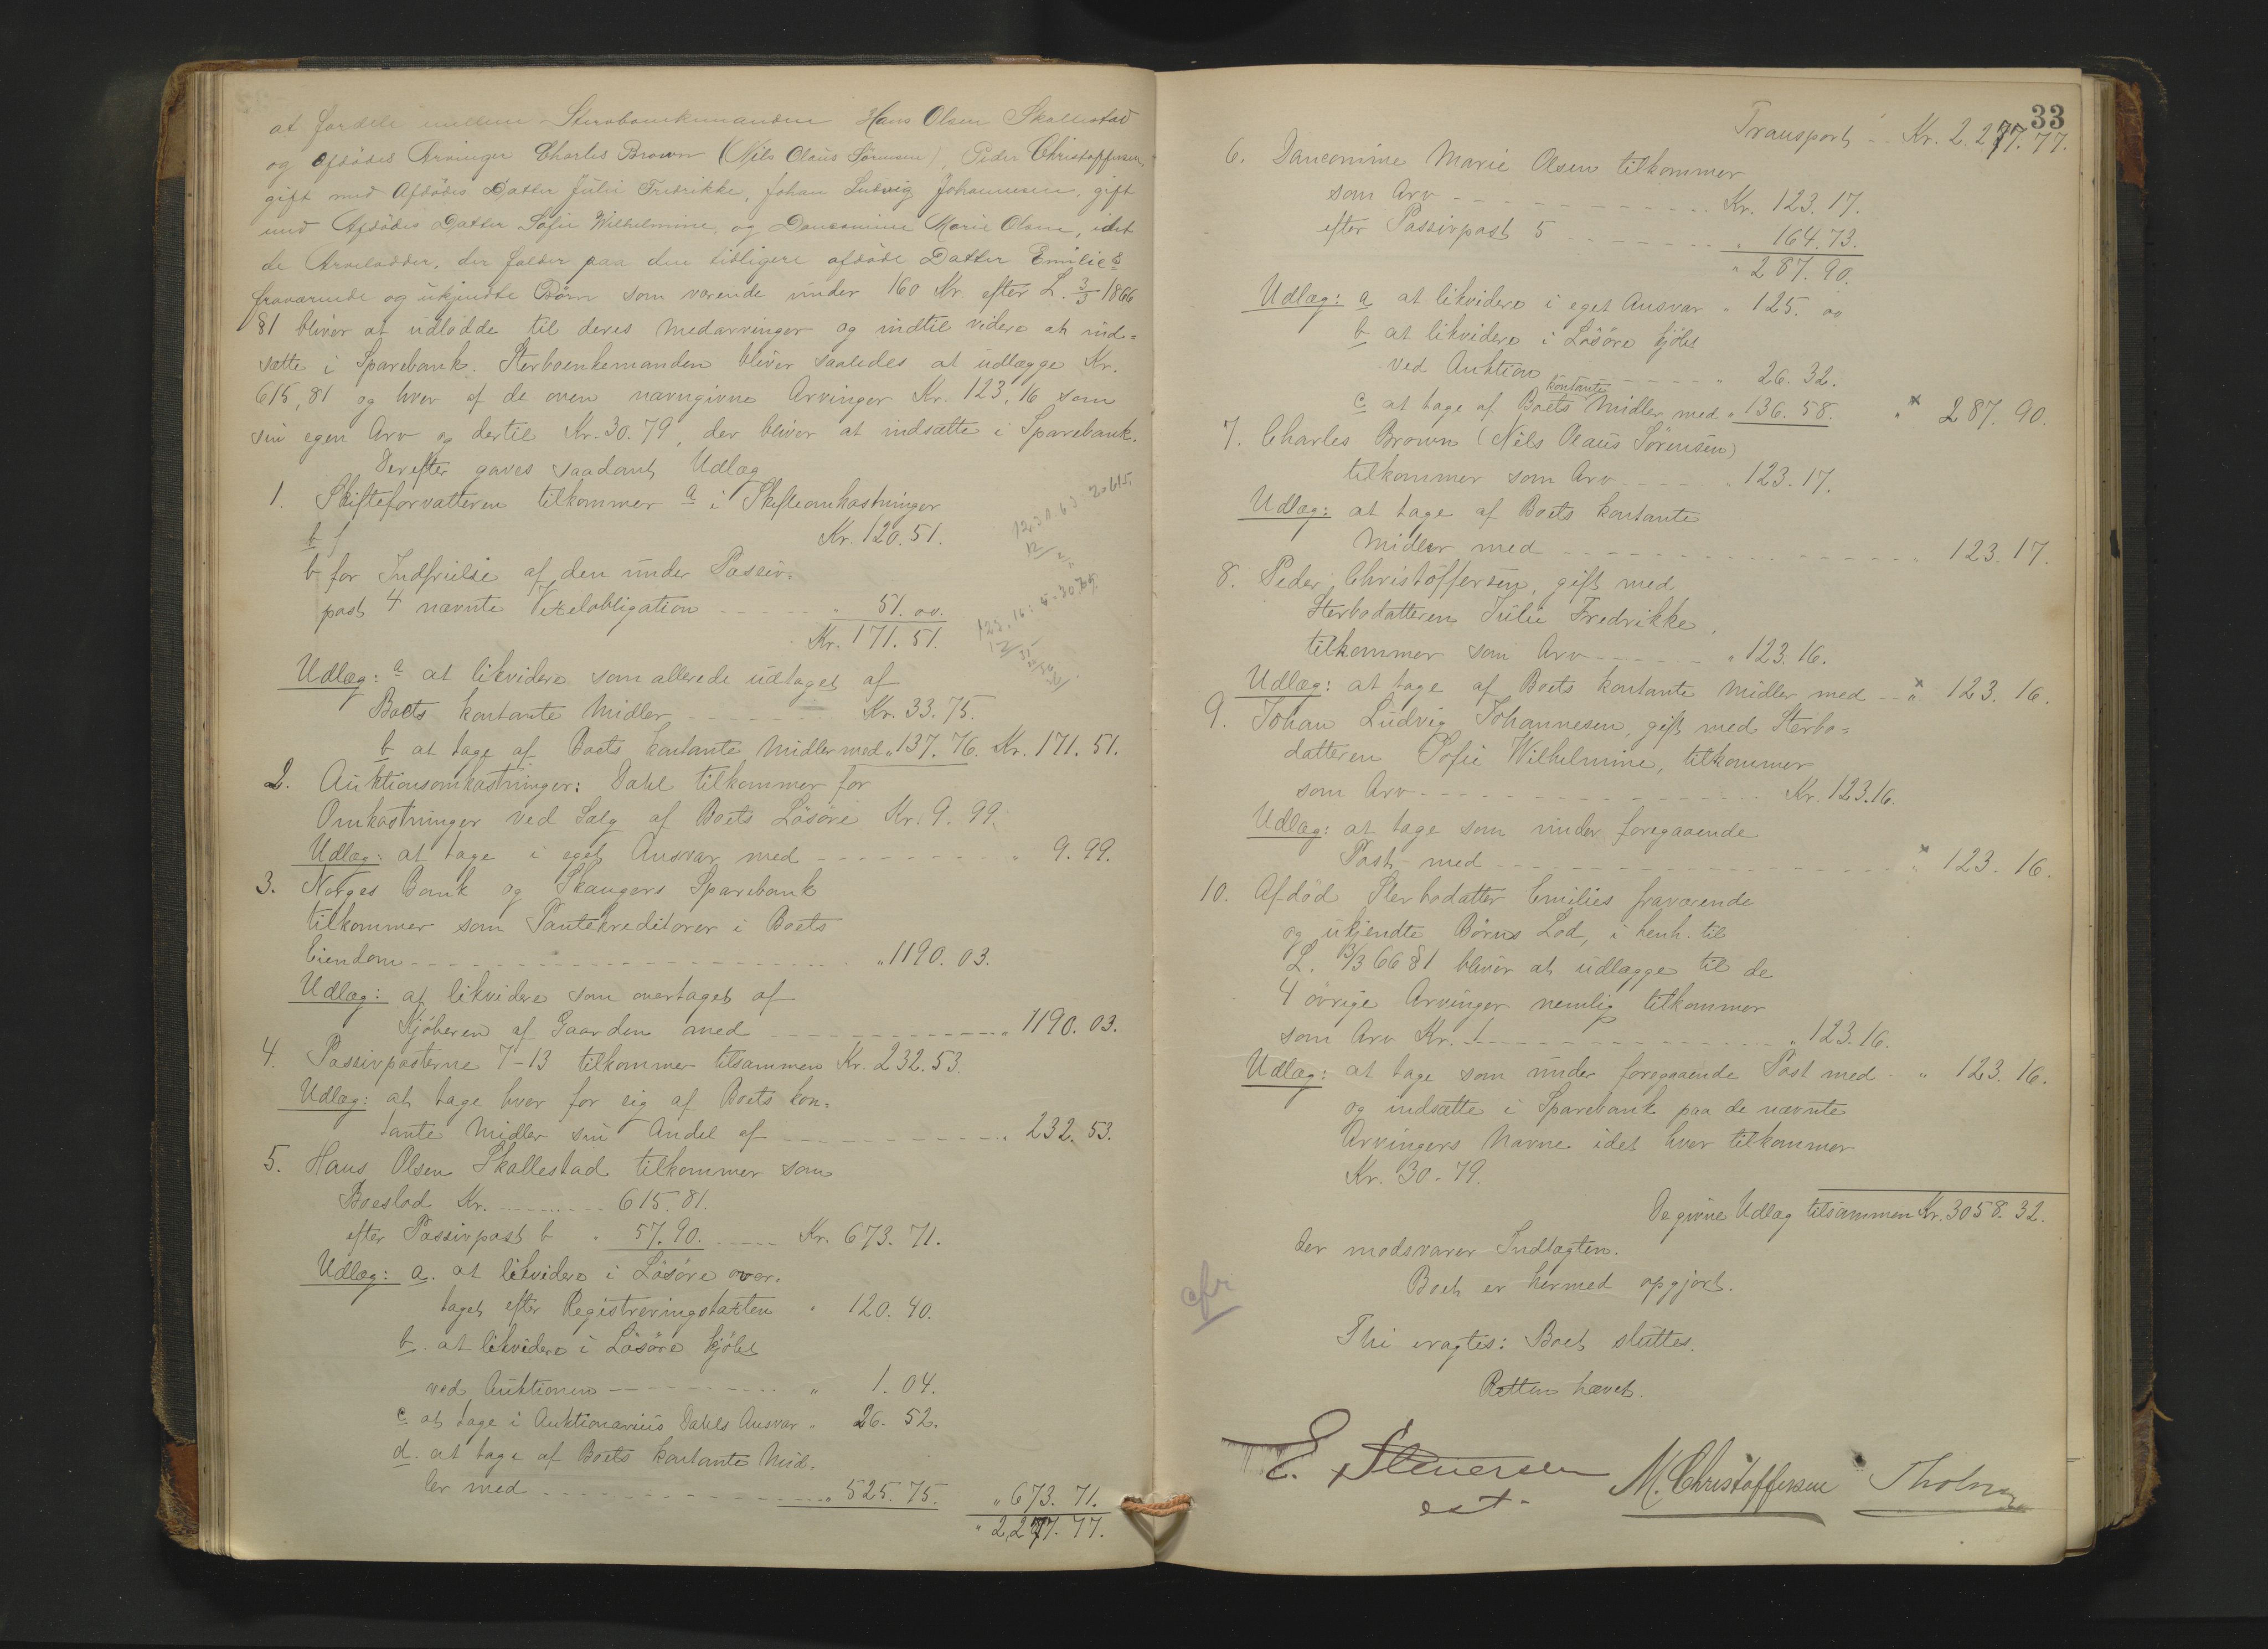 at fordele imellem Sterboenkemanden Hans Olsen Skallestad
og Afdødes Arvinger Charles Brown (Nils Olaus Sørensen), Peder Christoffersen
gift med Afdødes Datter Julie Fredrikke, Johan Ludvig Johannesen, gift
med Afdødes Datter Sofie Wilhelmine og Danconine Marie Olsen, idet
de Arvelodder, der falder paa den tidligere afdøde Datter Emilies
fraværende og ukjendte Børn som værende under 160 Kr. efter L. 3/3 1866
§1 bliver at udlodde til deres Medarvinger og indtil videre at ind=
sætte i Sparebank. Sterboenkemanden bliver saaledes at udlægge Kr.
615,81 og hver af de oven navngivne Arvinger Kr. 123,16 som
sin egen Arv og dertil Kr. 30.79, der bliver at indsætte i Sparebank.
Derefter gaves saadant Udlæg
1. Skifteforvalteren tilkommer a i Skifteomkostninger
b f Kr. 120.51.
b for Indfrielse af den under Passiv=
post 4 nævnte Vexelobligation - - - " 51. oo.
Kr. 171.51.
Udlæg: a at likvidere som allerede udtaget af
Boets kontante Midler - - - - - Kr. 33.75.
b at tage af Boets kontante Midler med " 137.76. Kr. 171.51.
2. Auktionsomkostninger: Dahl tilkommer for
Omkostninger ved Salg af Boets Løsøre Kr. 9.99.
Udlæg: at tage i eget Ansvar med - - - - - - " 9.99.
3. Norges Bank og Skaugers Sparebank
tilkommer som Pantekreditorer i Boets
Eiendom - - - - - - - - - - - - " 1190.03.
Udlæg: at likvidere som overtaget af
Kjøberen af Gaarden med - - - - - - - " 1190.03.
4. Passivposterne 7-13 tilkommer tilsammen Kr. 232.53.
Udlæg: at tage hver for sig af Boets kon=
tante Midler sin Andel af - - - - - - - " 232.53.
5. Hans Olsen Skallestad tilkommer som
Boeslod Kr. - - - - 615.81.
efter Passivpost 6 " 57.90. - - - Kr. 673.71.
Udlæg: a. at likvidere i Løsøre over=
taget efter Registreringstaxten " 120.40.
b. at likvidere i Løsøre kjøbt
ved Auktionen - - - - - - " 1.04.
c at tage i Auktionarius Dahls Ansvar " 26.52.
d. at tage af Boets kontante Mid=
ler med - - - - - - - - - " 525.75. " 673.71.
" 2,277.77.
33
Transport - - Kr. 2.277.77.
6. Danconine Marie Olsen tilkommer
som Arv - - - - - - - - - - Kr. 123.17.
efter Passivpost 5 - - - - - - " 164.73.
" 287.90.
Udlæg: a at likvidere i eget Ansvar " 125. oo
b at likvidere i Løsøre kjøbt
ved Auktion - - - - - - " 26.32.
c at tage af Boets kontante Midler med " 136.58. " x 287.90.
7. Charles Brown (Nils Olaus Sørensen)
tilkommer som Arv - - - - " 123.17.
Udlæg: at tage af Boets kontante
Midler med - - - - - - - - - - - " 123.17.
8. Peder Christoffersen, gift med
Sterbodatteren Julie Fredrikke,
tilkommer som Arv - - - - - " 123.16.
Udlæg: at tage af Boets kontante Midler med - - x " 123.16.
9. Johan Ludvig Johannesen, gift med Sterbo=
datteren Sofie Wilhelmine, tilkommer
som Arv - - - - - - - - - - - - Kr. 123.16.
Udlæg: at tage som under foregaaende
Post med - - - - - - - - - - - - x " 123.16.
10. Afdød Sterbodatter Emilies fraværende
og ukjendte Børns Lod, i henh. til
L. 3/3 66 §1 bliver at udlægge til de
4 øvrige Arvinger nemlig tilkommer
som Arv Kr. 1 - - - - - - - - - " 123.16.
Udlæg: at tage som under foregaaende Post med - " 123.16.
og indsætte i Sparebank paa de nævnte
Arvingers Navne idet hver tilkommer
Kr. 30.79.
De givne Udlæg tilsammen Kr. 3058.32.
der modsvarer Indtægten.
Boet er hermed opgjort.
Thi eragtes: Boet sluttes.
Retten hævet.
cfr
E. Stenersen M. Christoffersen Tholm
cst.